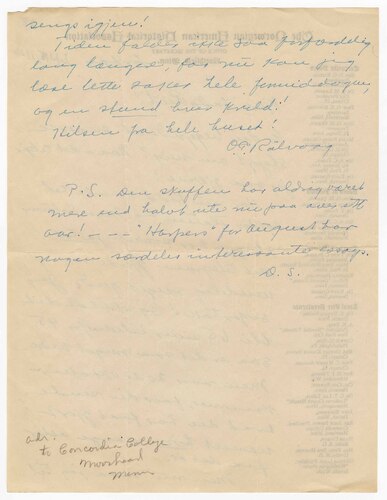 sengs igjen!
Tiden falder ikke saa forfærdelig
lang længere, for nu kan jeg
læse lette saker hele formiddagen,
og en stund hver kveld!
Hilsen fra hele huset!
O.E. Rölvaag
P.S. Den skuffen har aldrig været
mere end halvt ute nu paa over ett
aar! — — — "Harpers" for August har
nogen særdeles interessante essays.
D. S.
adr.
to Concordia College
Moorhead
Minn